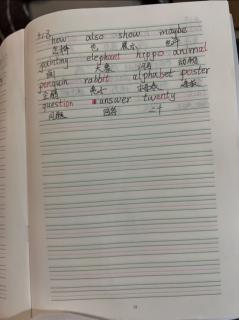 how also show maybe
怎样 也 展示 也许
painting elephant hippo animal
画 大象 河马 动物
penguin rabbit alphabet poster
企鹅 兔子 字母表 海报
question answer twenty
问题 回答 二十